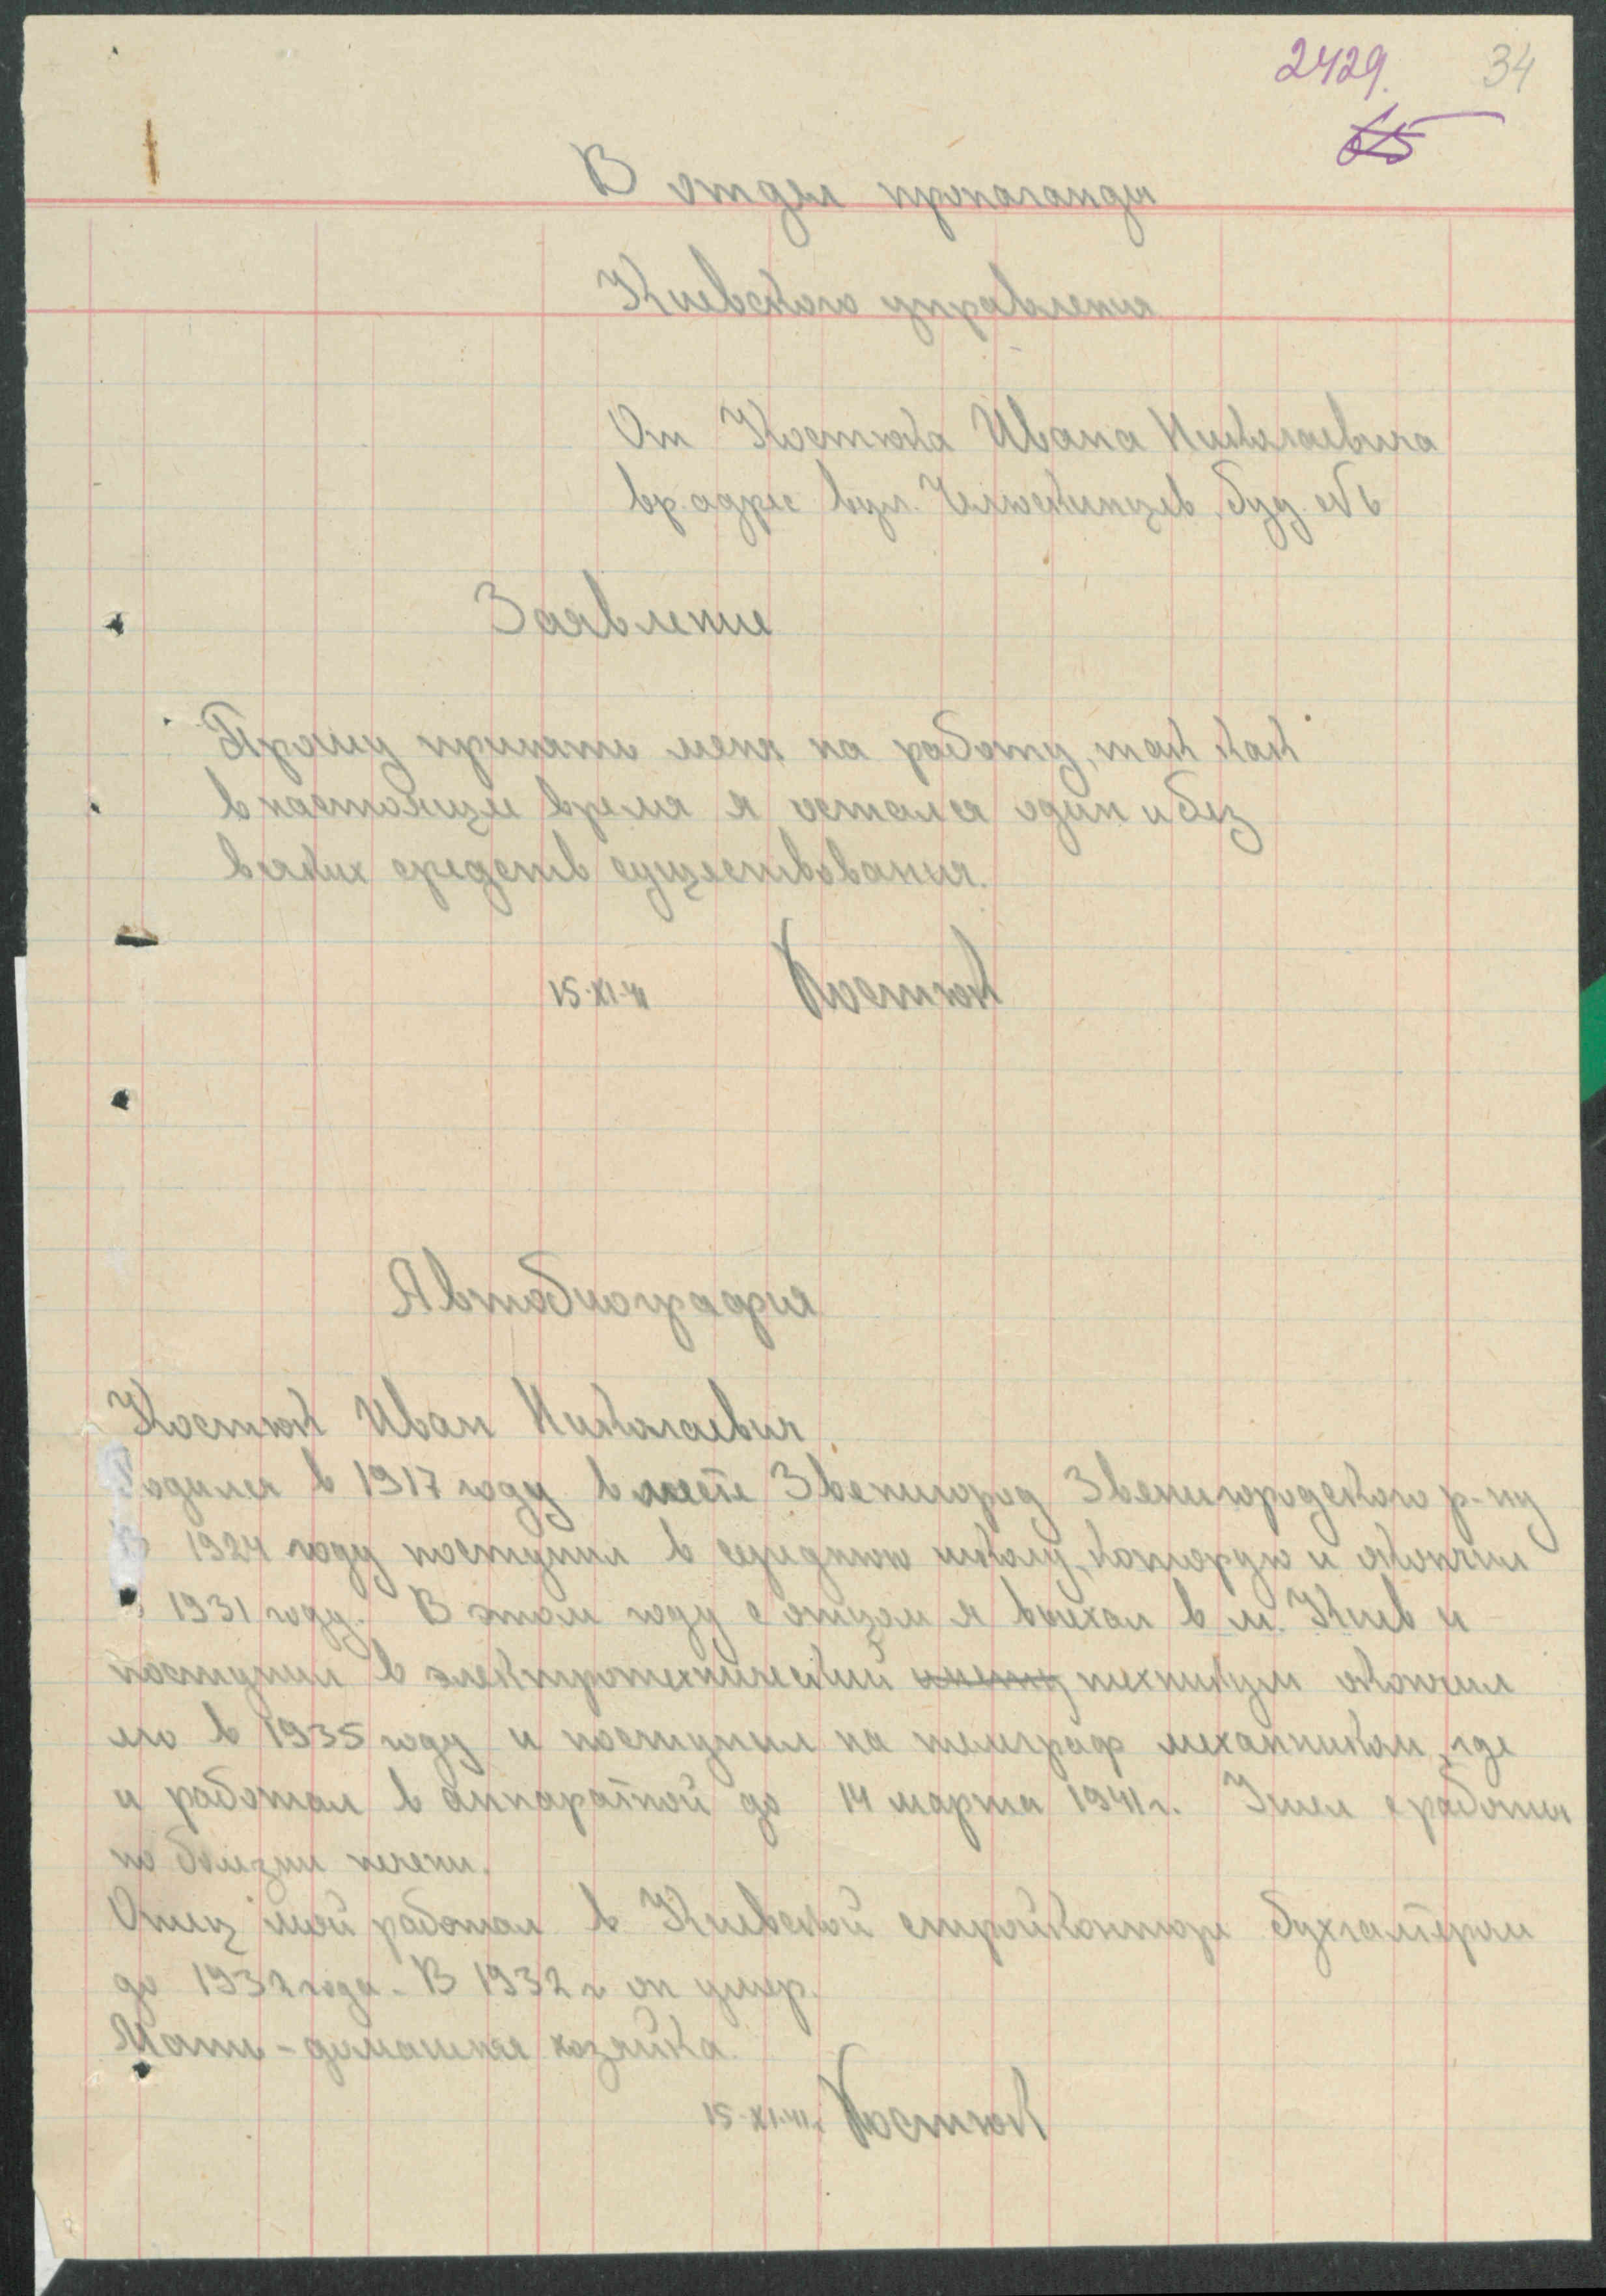 2429. 34
65
В отдел пропаганды
Киевского управления
От Костюка Ивана Николаевича
вр. адрес вул. Челюскинцев, буд.
Заявление
Прошу принять меня на работу, так как
в настоящее время я остался один и без
всяких средств существования.
15·XI·41 Костюк
Автобиография
Костюк Иван Николаевич
Родился в 1917 году в месте Звенигород Звенигородского р-ну
В 1924 году поступил в середнюю школу, которую и окончил
в 1931 году. В этом году с отцом я выехал в м. Киев и
поступил в электротехнический техникум окончил
его в 1935 году и поступил на телеграф механником, где
и работал в аппаратной до 14 марта 1941 г. Ушел с работы
по болезни печени.
Отец мой работал в Киевской стройконторе бухгалтером
до 1932 года. В 1932 г он умер.
Мать - домашняя хозяйка.
15·XI·41г. Костюк